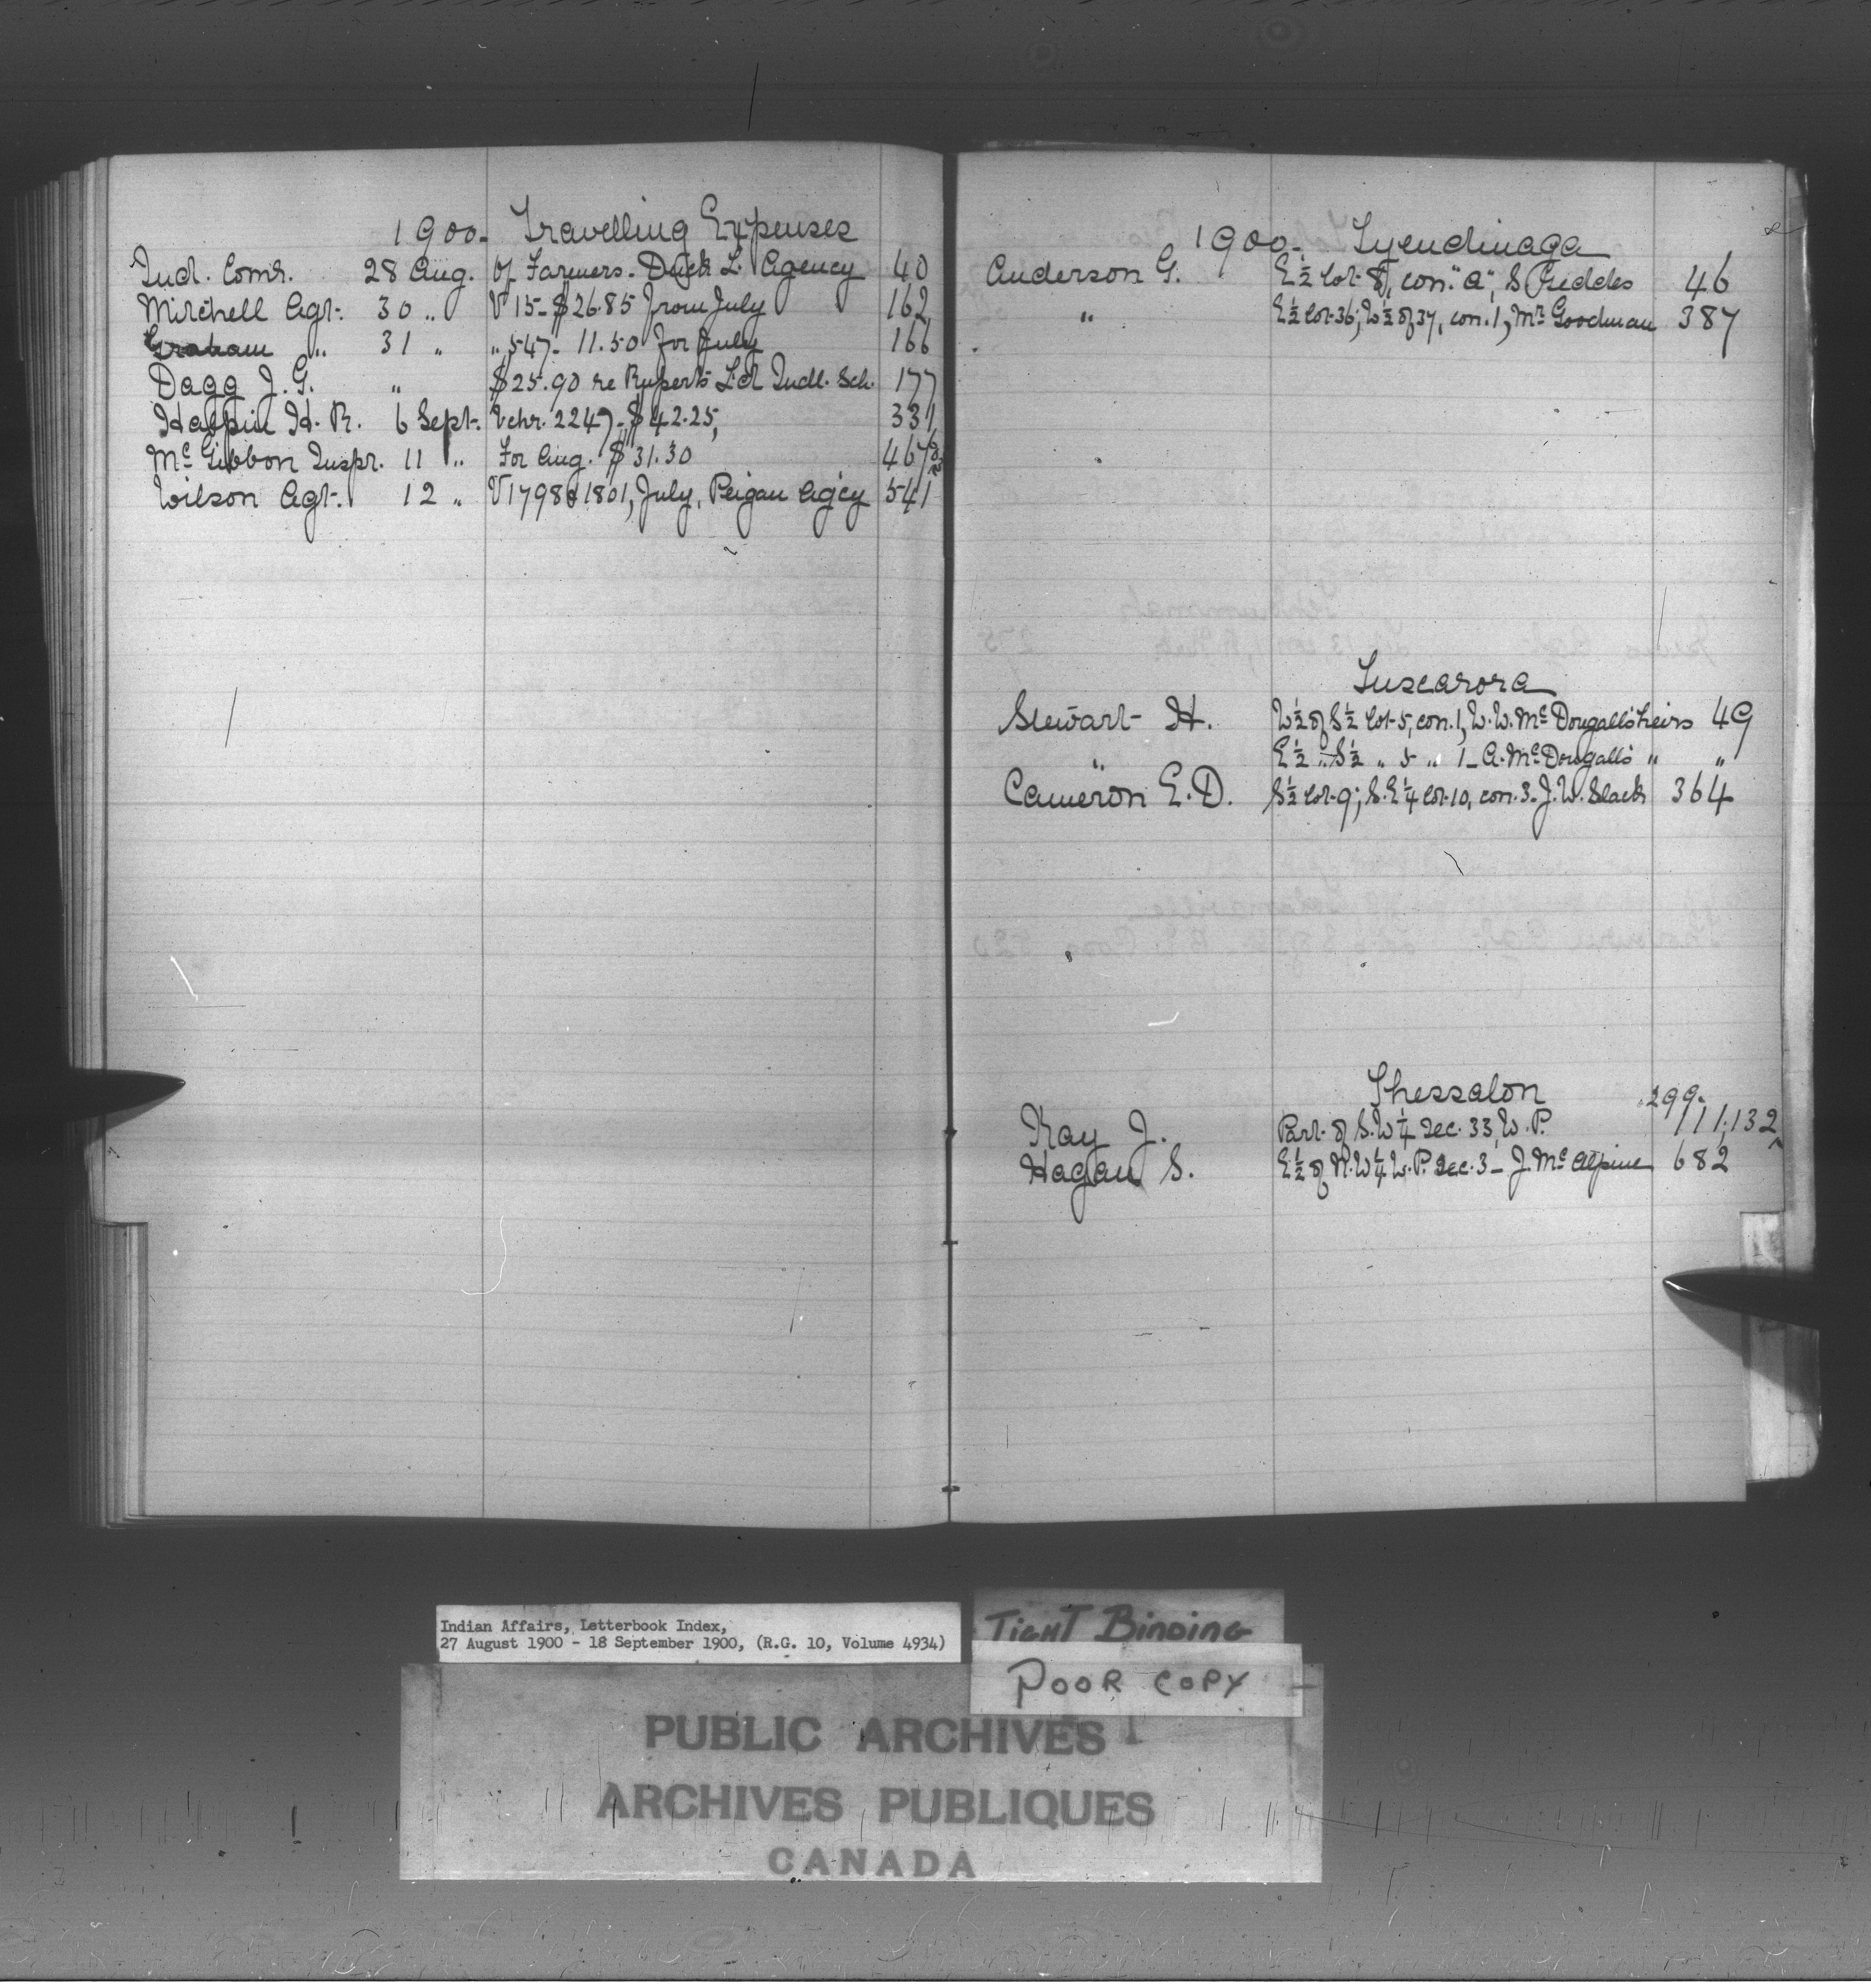 1900. Travelling Expenses
Ind. Comr. 28 Aug. Of Farmers. Duck L. Agency 40
Mitchell Agt. 30 " V 15 - $26.85 from July 162
Graham " 31 " " 547 - 11.50 for July 166
Dagg J. G. " $25.90 re Ruperts Ld Indl. Sch. 177
Halpin H. R. 6 Sept. Vchr. 2247 - $42.25, 331
McGibbon Inspr. 11 " For Aug. $31.30 467
Wilson Agt. 12 " V 1798 & 1801, July, Peigan Ag'cy 541
1900. Tyendinaga
Anderson G. E ½ lot 8, con. "A", S Preddes 46
" E ½ lot 36; W ½ of 37, con. 1, Mr. Goodman 387
Tuscarora
Stewart H. W ½ of S ½ lot 5, con. 1, W. W. McDougall's heirs 49
" E ½ " S ½ " 5 " 1 - A. McDougall's " "
Cameron E. D. S ½ lot 9; S. E ¼ lot 10, con. 3 - J. W. Slack 364
Thessalon
299.
Kay J. Part of S. W ¼ Sec. 33, W. P. 111,132
Hagan S. E ½ of N. W ¼ W. P. Sec. 3 - J. McAlpine 682
Indian Affairs, Letterbook Index,
27 August 1900 - 18 September 1900, (R.G. 10, Volume 4934)
TIGHT BINDING
POOR COPY
PUBLIC ARCHIVES
ARCHIVES PUBLIQUES
CANADA